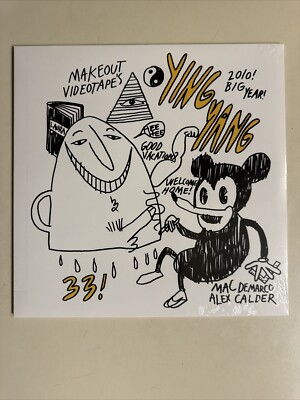 MAKEOUT
VIDEOTAPE'S
YING
YANG
2010!
BIG
YEAR!
GOOD
VACATION?
WELCOME
HOME!
33!
MAC DEMARCO
ALEX CALDER